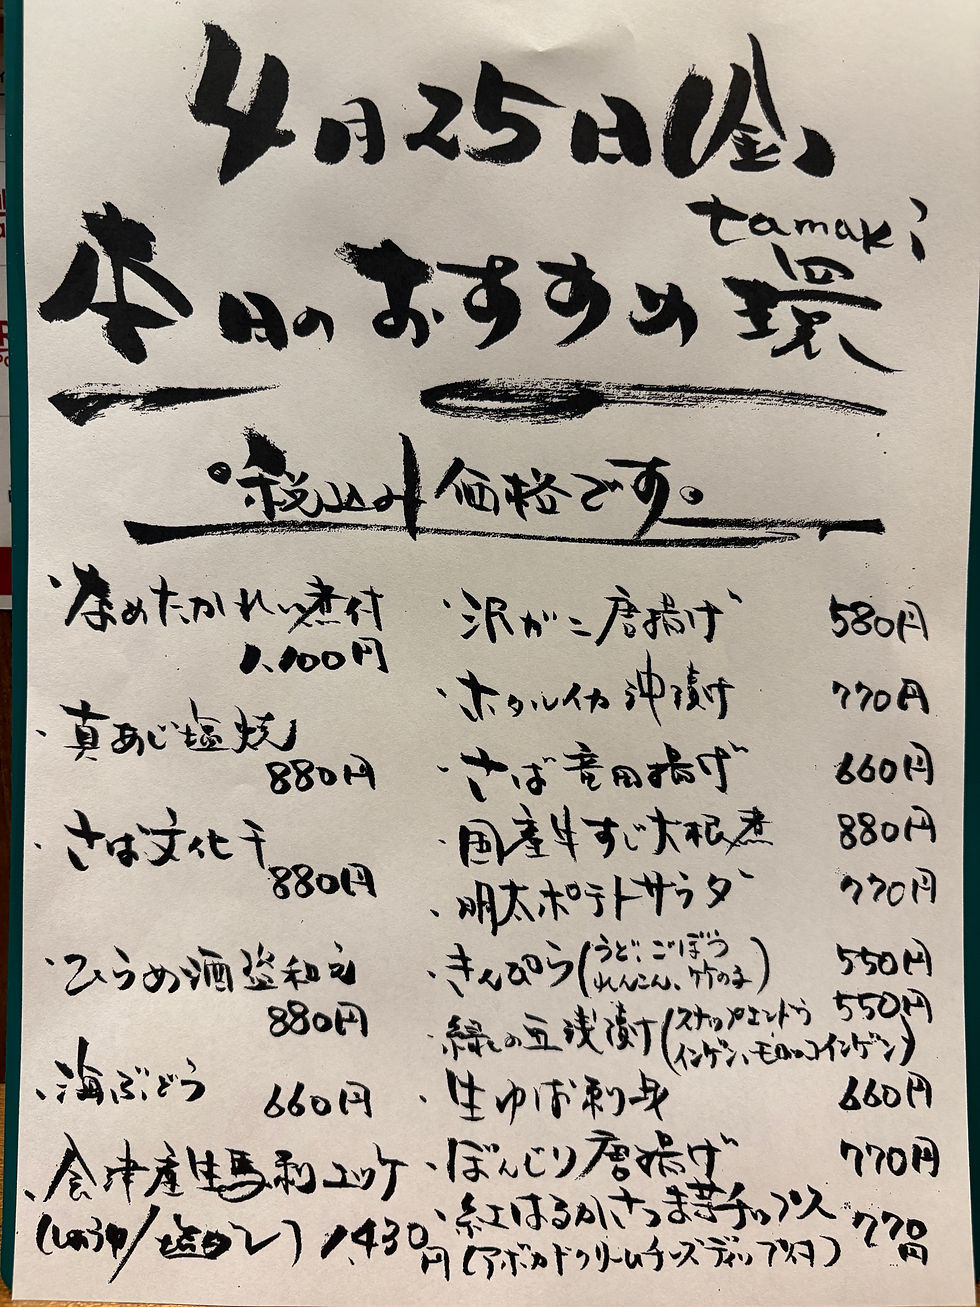 4月25日(金)
tamaki
本日のおすすめ 環
。税込み価格です。
・なめたかれい煮付
1,100円
・真あじ塩焼
880円
・さば文化干
880円
・ひらめ酒盗和え
880円
・海ぶどう 660円
・会津産生馬刺ユッケ
(しょうゆ/塩ゆし) 1,430円
・沢がに唐揚げ 580円
・ホタルイカ沖漬け 770円
・さば竜田揚げ 660円
・国産牛すじ大根煮 880円
・明太ポテトサラダ 770円
・きんぴら(うど、ごぼう 550円
れんこん、竹の子)
・緑の豆浅漬け(スナップエンドウ 550円
インゲン、モロッコインゲン)
・生ゆば刺身 660円
・ぼんじり唐揚げ 770円
・紅はるかさつま芋チップス 770円
(アボカドクリームチーズディップ付)